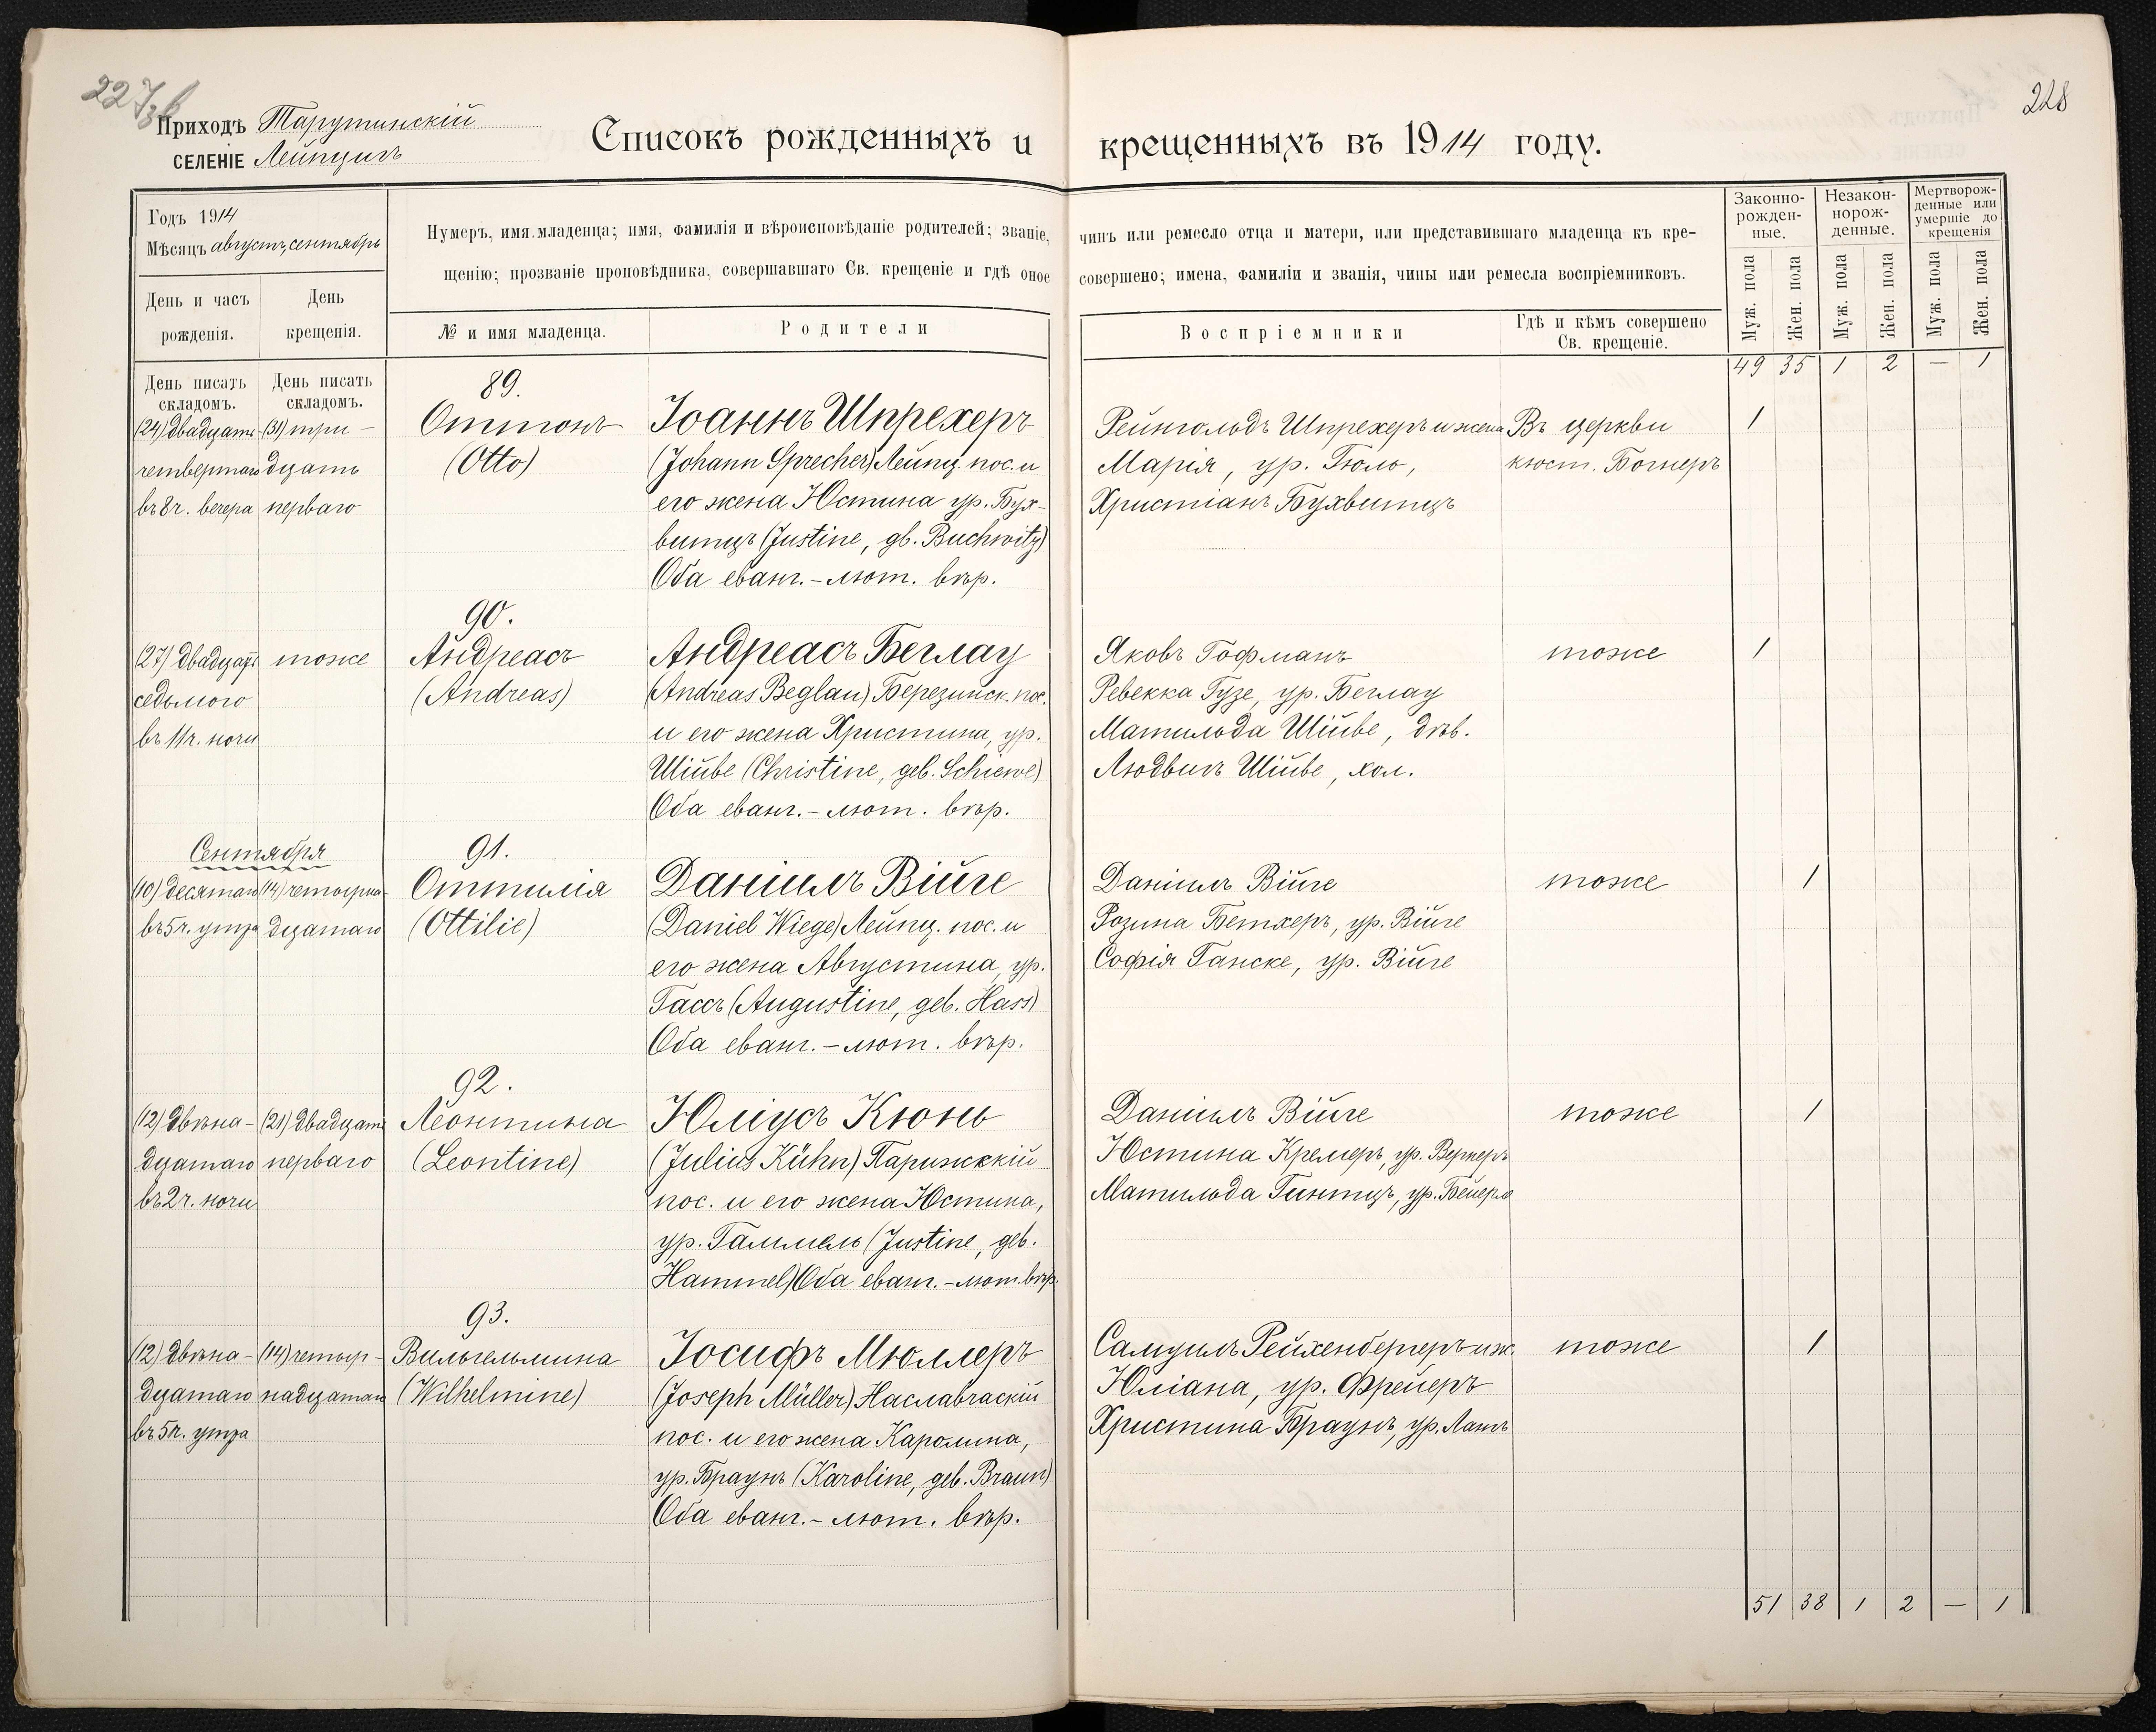 227/3b
228
Приходъ Тарутинскій
СЕЛЕНІЕ Лейпцигъ
Списокъ рожденныхъ и крещенныхъ въ 1914 году.
Годъ 1914
Мѣсяцъ августъ, сентябрь
День и часъ рожденія.
День крещенія.
Нумеръ, имя младенца; имя, фамилія и вѣроисповѣданіе родителей; званіе, чинъ или ремесло отца и матери, или представившаго младенца къ кре-
щенію; прозваніе проповѣдника, совершавшаго Св. крещеніе и гдѣ оное совершено; имена, фамиліи и званія, чины или ремесла воспріемниковъ.
№ и имя младенца.
Родители
Воспріемники
Гдѣ и кѣмъ совершено
Св. крещеніе.
Законно-
рожден-
ные.
Незакон-
норож-
денные.
Мертворож-
денные или
умершіе до
крещенія
Муж. пола
Жен. пола
Муж. пола
Жен. пола
Муж. пола
Жен. пола
49 35 1 2 — 1
День писать
складомъ.
День писать
складомъ.
(24) двадцать
четвертаго
въ 8 ч. вечера
(31) три-
дцать
перваго
89.
Оттонъ
(Otto)
Іоаннъ Шпрехеръ
(Johann Sprecher) Лейпц. пос. и
его жена Юстина ур. Бух-
витцъ (Justine, gb. Buchwitz)
Оба еванг.-лют. вѣр.
Рейнгольдъ Шпрехеръ и жена
Марія, ур. Гюло,
Христіанъ Бухвитцъ
Въ церкви
кюст. Богнеръ
1
(27) двадцать
седьмого
въ 11 ч. ночи
тоже
90.
Андреасъ
(Andreas)
Андреасъ Беглау
(Andreas Beglau) Березинск. пос.
и его жена Христина, ур.
Шійве (Christine, geb. Schiewe)
Оба еванг.-лют. вѣр.
Яковъ Гофманъ
Ревекка Гузе, ур. Беглау
Матильда Шійве, дѣв.
Людвигъ Шійве, хол.
тоже
1
Сентября
(10) десятаго
въ 5 ч. утра
(14) четырна-
дцатаго
91.
Оттилія
(Ottilie)
Даніилъ Війге
(Daniel Wiege) Лейпц. пос. и
его жена Августина, ур.
Гассъ (Augustine, geb. Hass)
Оба еванг.-лют. вѣр.
Даніилъ Війге
Розина Бетхеръ, ур. Війге
Софія Ганске, ур. Війге
тоже
1
(12) двѣна-
дцатаго
въ 2 ч. ночи
(21) двадцать
перваго
92.
Леонтина
(Leontine)
Юліусъ Кюнь
(Julius Kühn) Парижскій
пос. и его жена Юстина,
ур. Гаммель (Justine, geb.
Hammel) Оба еванг.-лют. вѣр.
Даніилъ Війге
Юстина Кремеръ, ур. Вернеръ
Матильда Гинтцъ, ур. Бейерле
тоже
1
(12) двѣна-
дцатаго
въ 5 ч. утра
(14) четыр-
надцатаго
93.
Вильгельмина
(Wilhelmine)
Іосифъ Мюллеръ
(Joseph Müller) Наславчаскій
пос. и его жена Каролина,
ур. Браунъ (Karoline, geb. Braun)
Оба еванг.-лют. вѣр.
Самуилъ Рейхенбергеръ и ж.
Юліана, ур. Фрейеръ
Христина Браунъ, ур. Лангъ
тоже
1
51 38 1 2 — 1